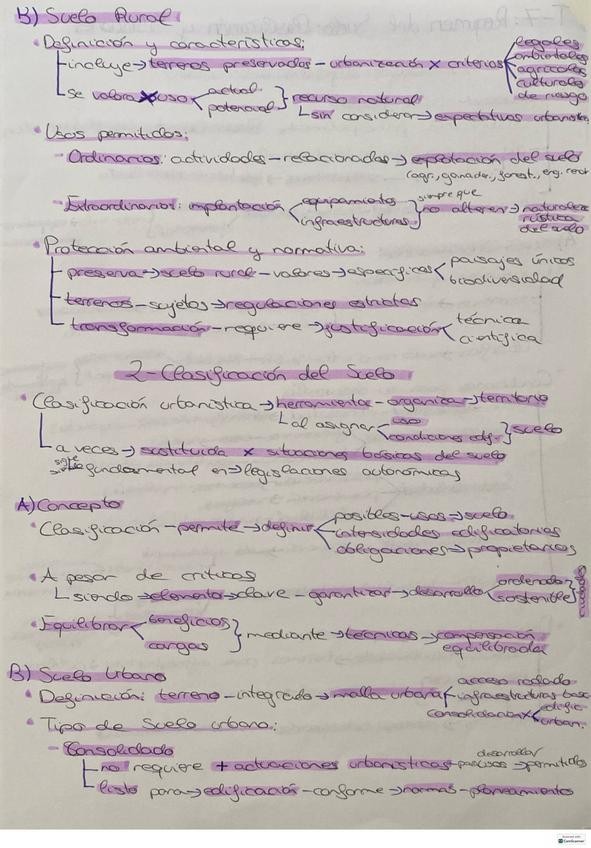 B) Suelo Rural
• Definición y características:
incluye → terrenos preservados - urbanización x criterios legales
ambientales
agrícolas
culturales
de riesgo
se valora x uso actual
potencial } recurso natural
sin considerar → expectativas urbanístic.
• Usos permitidos:
- Ordinarios: actividades - relacionadas → explotación del suelo
(agr., ganader., forest., eng. reno
- Extraordinarios: implantación equipamientos
infraestructuras } siempre que
no alteren → naturaleza
rústica
del suelo
• Protección ambiental y normativa:
preserva → suelo rural - valores → específicos paisajes únicos
biodiversidad
terrenos - sujetos → regulaciones estrictas
transformación - requiere → justificación técnica
científica
2- Clasificación del Suelo
• Clasificación urbanística → herramienta - organiza → territorio
al asignar uso
condiciones edif. } suelo
a veces → sustituida x situaciones básicas del suelo
sigue siendo fundamental en → legislaciones autonómicas
A) Concepto
• Clasificación - permite → definir posibles - usos → suelo
intensidades edificatorias
obligaciones → propietarios
• A pesar de críticas
siendo → elemento → clave - garantizar → desarrollo ordenado
sostenible } ciudades
• Equilibrar beneficios
cargas } mediante → técnicas → compensación
equilibrada
B) Suelo Urbano
• Definición: terreno - integrado → malla urbana acceso rodado
infraestructuras basc
consolidación x edific.
urban.
• Tipo de Suelo urbano:
- Consolidado
no requiere + actuaciones urbanísticas - para usos → permitidos
desarrollar
listo para → edificación - conforme → normas - planeamiento
CamScanner